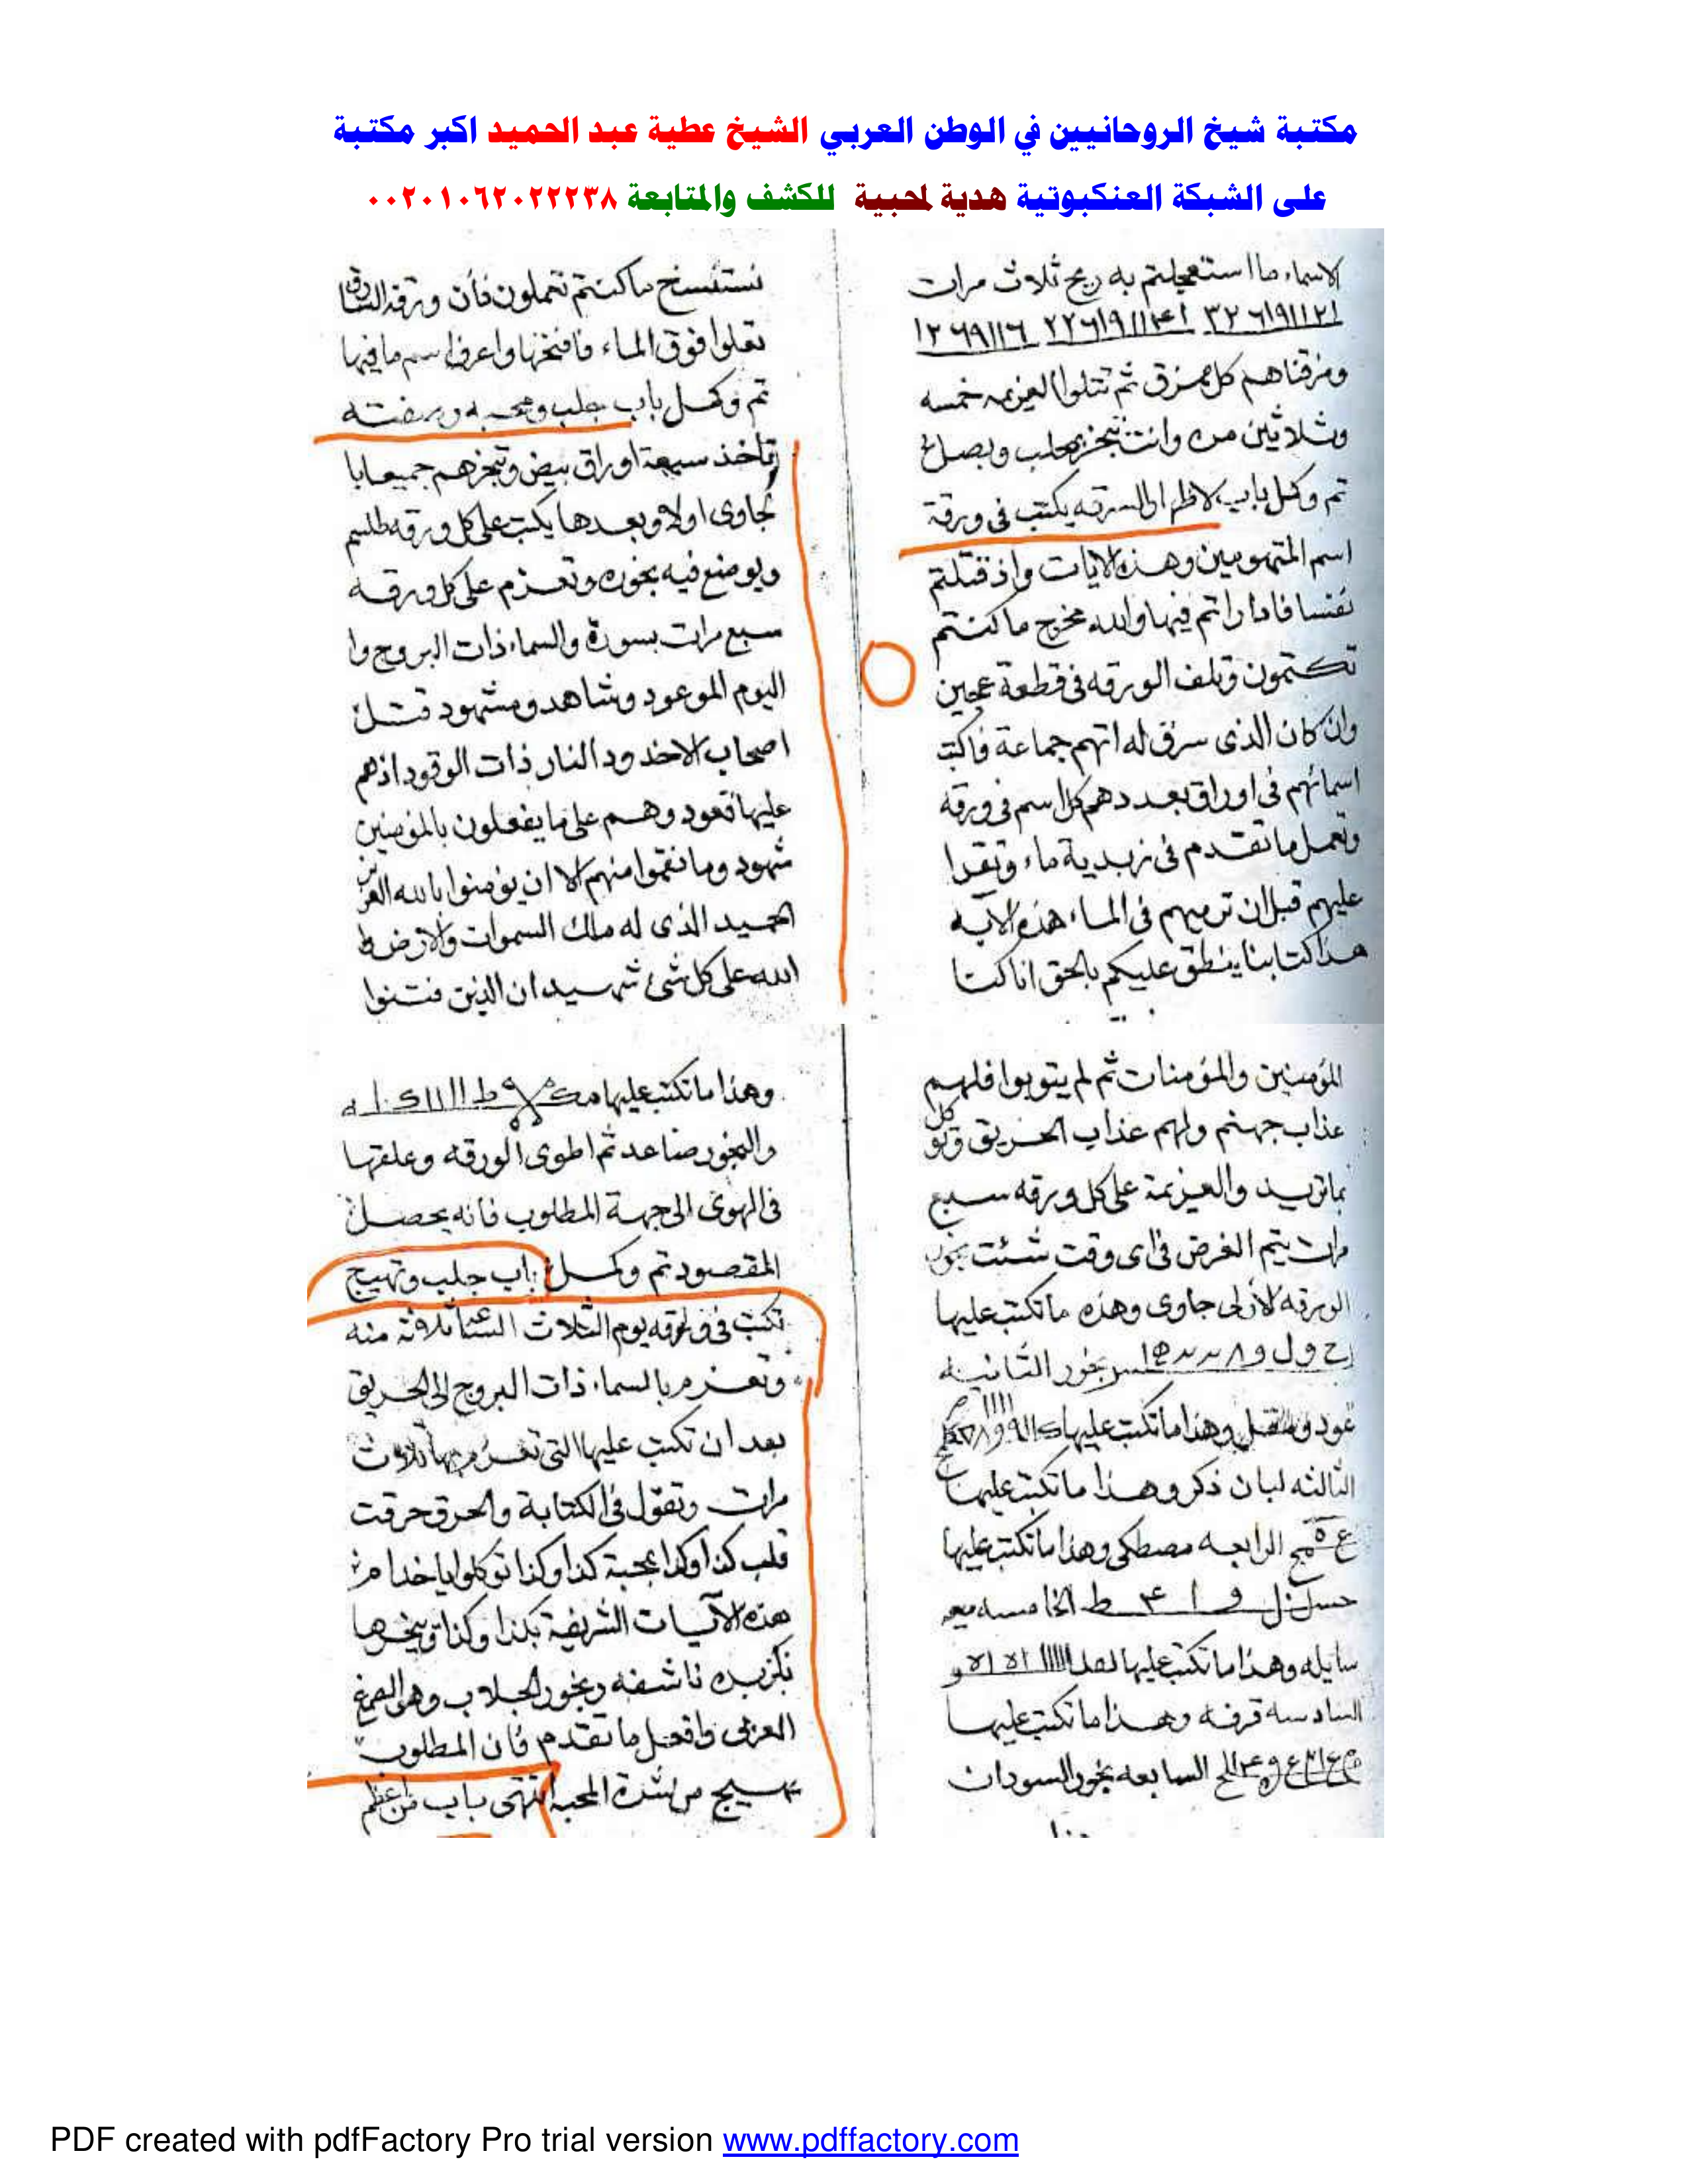 مكتبة شيخ الروحانيين في الوطن العربي الشيخ عطية عبد الحميد اكبر مكتبة
على الشبكة العنكبوتية هدية لمحبية للكشف والمتابعة ٠٠٢٠١٠٦٢٠٢٢٢٣٨
الاسماء مااستعجلتم به ريح ثلاث مرات
ومزقناهم كل ممزق ثم تتلوا العزيمه خمسه
وثلاثين مره وانت تبخر بحلب وبصل
تم وكمل باب لاظهار السرقه يكتب فى ورقة
اسم المتهومين وهذه الايات واذ قتلتم
نفسا فادارأتم فيها والله مخرج ما كنتم
تكتمون وتلف الورقه فى قطعة عجين
وان كان الذى سرق له اتهم جماعة فاكتب
اسمائهم فى اوراق بعددهم كل اسم فى ورقه
وتعمل ما تقدم فى زبدية ماء وتقرا
عليهم قبل ان ترميهم فى الماء هذه الآيه
هذا كتابنا ينطق عليكم بالحق انا كنا
نستنسخ ما كنتم تعملون فأن ورقة السارق
تعلوا فوق الماء فافتحها واعرف اسم ما فيها
تم وكمل باب جلب ومحبه وصفته
تأخذ سبعة اوراق بيض وتبخرهم جميعا با
لجاوى اولا وبعدها يكتب على كل ورقه طلسم
ويوضع فيه بخوره وتعزم على كل ورقه
سبع مرات بسورة والسماء ذات البروج وا
اليوم الموعود وشاهد ومشهود قتل
اصحاب الاخدود النار ذات الوقود اذهم
عليها قعود وهم على ما يفعلون بالمؤمنين
شهود وما نقموا منهم الا ان يؤمنوا بالله العزيز
الحميد الذى له ملك السموات والارض و
الله على كل شئ شهيد ان الذين فتنوا
المؤمنين والمؤمنات ثم لم يتوبوا فلهم
عذاب جهنم ولهم عذاب الحريق وتوكل
بما تريد والعزيمة على كل ورقه سبع
مرات يتم الغرض فى اى وقت شئت بخور
الورقه الأولى جاوى وهذه ما تكتب عليها
بخور الثانيه
عود وهذا ما تكتب عليها
الثالثه لبان ذكر وهذا ما تكتب عليها
الرابعه مصطكى وهذا ما تكتب عليها
الخامسه ميعه
سايله وهذا ما تكتب عليها
السادسه قرفه وهذا ما تكتب عليها
السابعه بخور السودان
وهذا ما تكتب عليها
والبخور صاعد ثم اطوى الورقه وعلقها
فى الهوى الى جهة المطلوب فانه يحصل
المقصود تم وكمل باب جلب وتهييج
تكتب فى ورقه يوم الثلاث
وتعزم بالسماء ذات البروج الى الحريق
بعد ان تكتب عليها التى تعزم بها ثلاث
مرات وتقول فى الكتابة والحرق حرقت
قلب كذا وكذا بمحبة كذا وكذا توكلوا يا خدام
هذه الآيات الشريفة بكذا وكذا وتبخرها
بكزبره ناشفه وبخور الجلاب وهى الصمغ
العربى وافعل ما تقدم فان المطلوب
يهيج من شدة المحبه انتهى باب من اعظم
PDF created with pdfFactory Pro trial version www.pdffactory.com